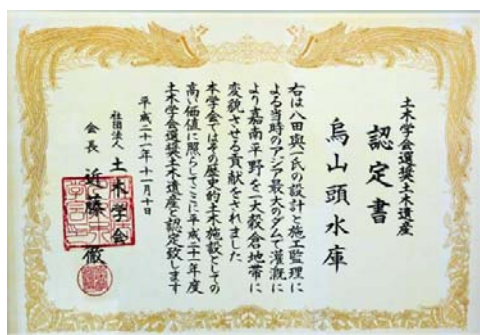 土木学会選奨土木遺産
認定書
烏山頭水庫
右は八田與一氏の設計と施工監理に
よる当時のアジア最大のダムで灌漑に
より嘉南平野を一大穀倉地帯に
変貌させる貢献をされました
本学会ではその歴史的土木施設としての
高い価値に照らしてここに平成二十一年度
土木学会選奨土木遺産と認定致します
平成二十一年十一月十日
社団法人 土木学会
会長 近藤 徹